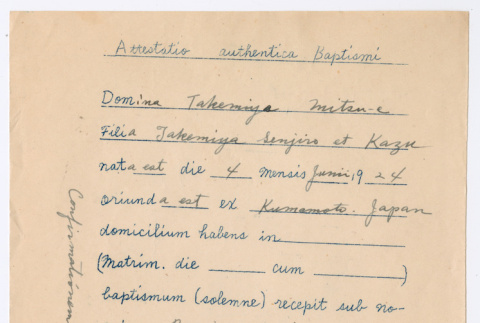 Attestatio authentica Baptismi
Domina Takemiya, Mitsu-e
Filia Takemiya Senjiro et Kazu
nata est die 4 mensis Junii, 19 24
oriunda est ex Kumamoto. Japan
domicilium habens in
(Matrim. die cum )
baptismum (solemne) recepit sub no-
Confirmationem